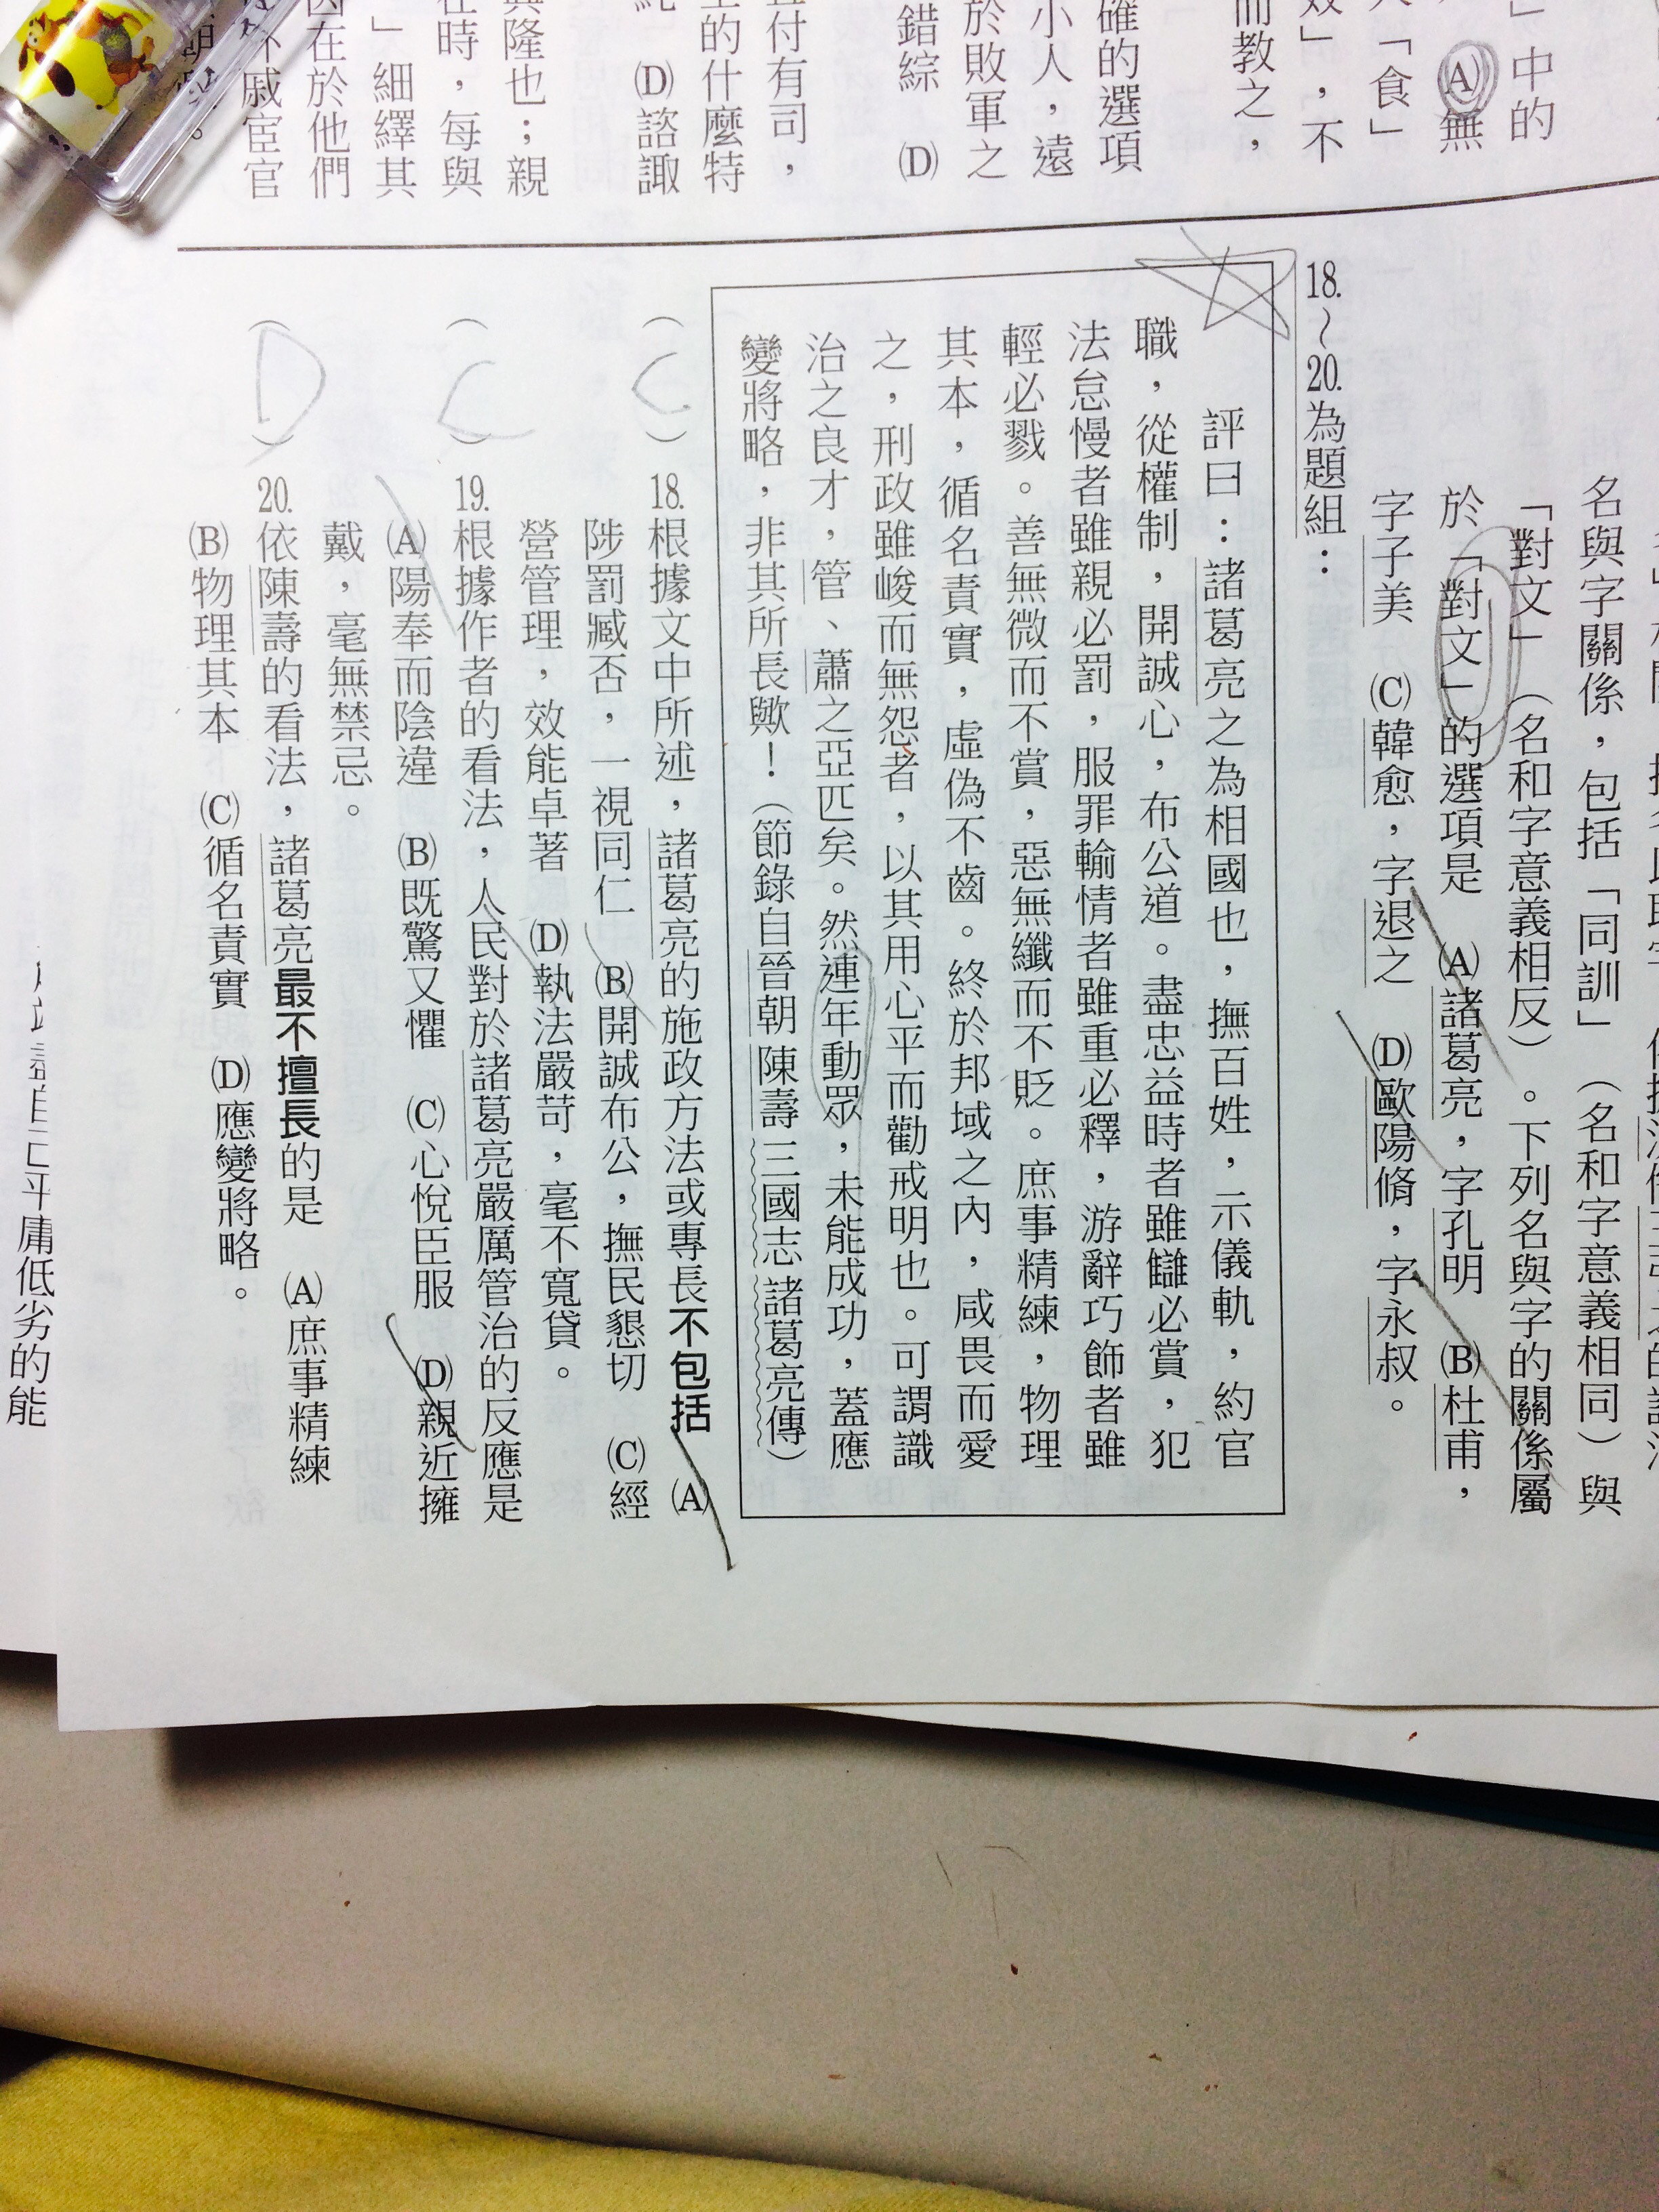 」中的
Ⓐ無
「食」
效」，不
而教之，
確的選項
小人，遠
於敗軍之
錯綜　(D)
付有司，
的什麼特
(D)諮諏
興隆也；親
在時，每與
」細繹其
因在於他們
戚宦官
名與字關係，包括「同訓」（名和字意義相同）與
「對文」（名和字意義相反）。下列名與字的關係屬
於「對文」的選項是　(A)諸葛亮，字孔明　(B)杜甫，
字子美　(C)韓愈，字退之　(D)歐陽脩，字永叔。
18.～20.為題組：
評曰：諸葛亮之為相國也，撫百姓，示儀軌，約官
職，從權制，開誠心，布公道。盡忠益時者雖讎必賞，犯
法怠慢者雖親必罰，服罪輸情者雖重必釋，游辭巧飾者雖
輕必戮。善無微而不賞，惡無纖而不貶。庶事精練，物理
其本，循名責實，虛偽不齒。終於邦域之內，咸畏而愛
之，刑政雖峻而無怨者，以其用心平而勸戒明也。可謂識
治之良才，管、蕭之亞匹矣。然連年動眾，未能成功，蓋應
變將略，非其所長歟！（節錄自晉朝 陳壽 三國志 諸葛亮傳）
（C）18.根據文中所述，諸葛亮的施政方法或專長不包括　(A)
陟罰臧否，一視同仁　(B)開誠布公，撫民懇切　(C)經
營管理，效能卓著　(D)執法嚴苛，毫不寬貸。
（C）19.根據作者的看法，人民對於諸葛亮嚴厲管治的反應是
(A)陽奉而陰違　(B)既驚又懼　(C)心悅臣服　(D)親近擁
戴，毫無禁忌。
（D）20.依陳壽的看法，諸葛亮最不擅長的是　(A)庶事精練
(B)物理其本　(C)循名責實　(D)應變將略。
平庸低劣的能